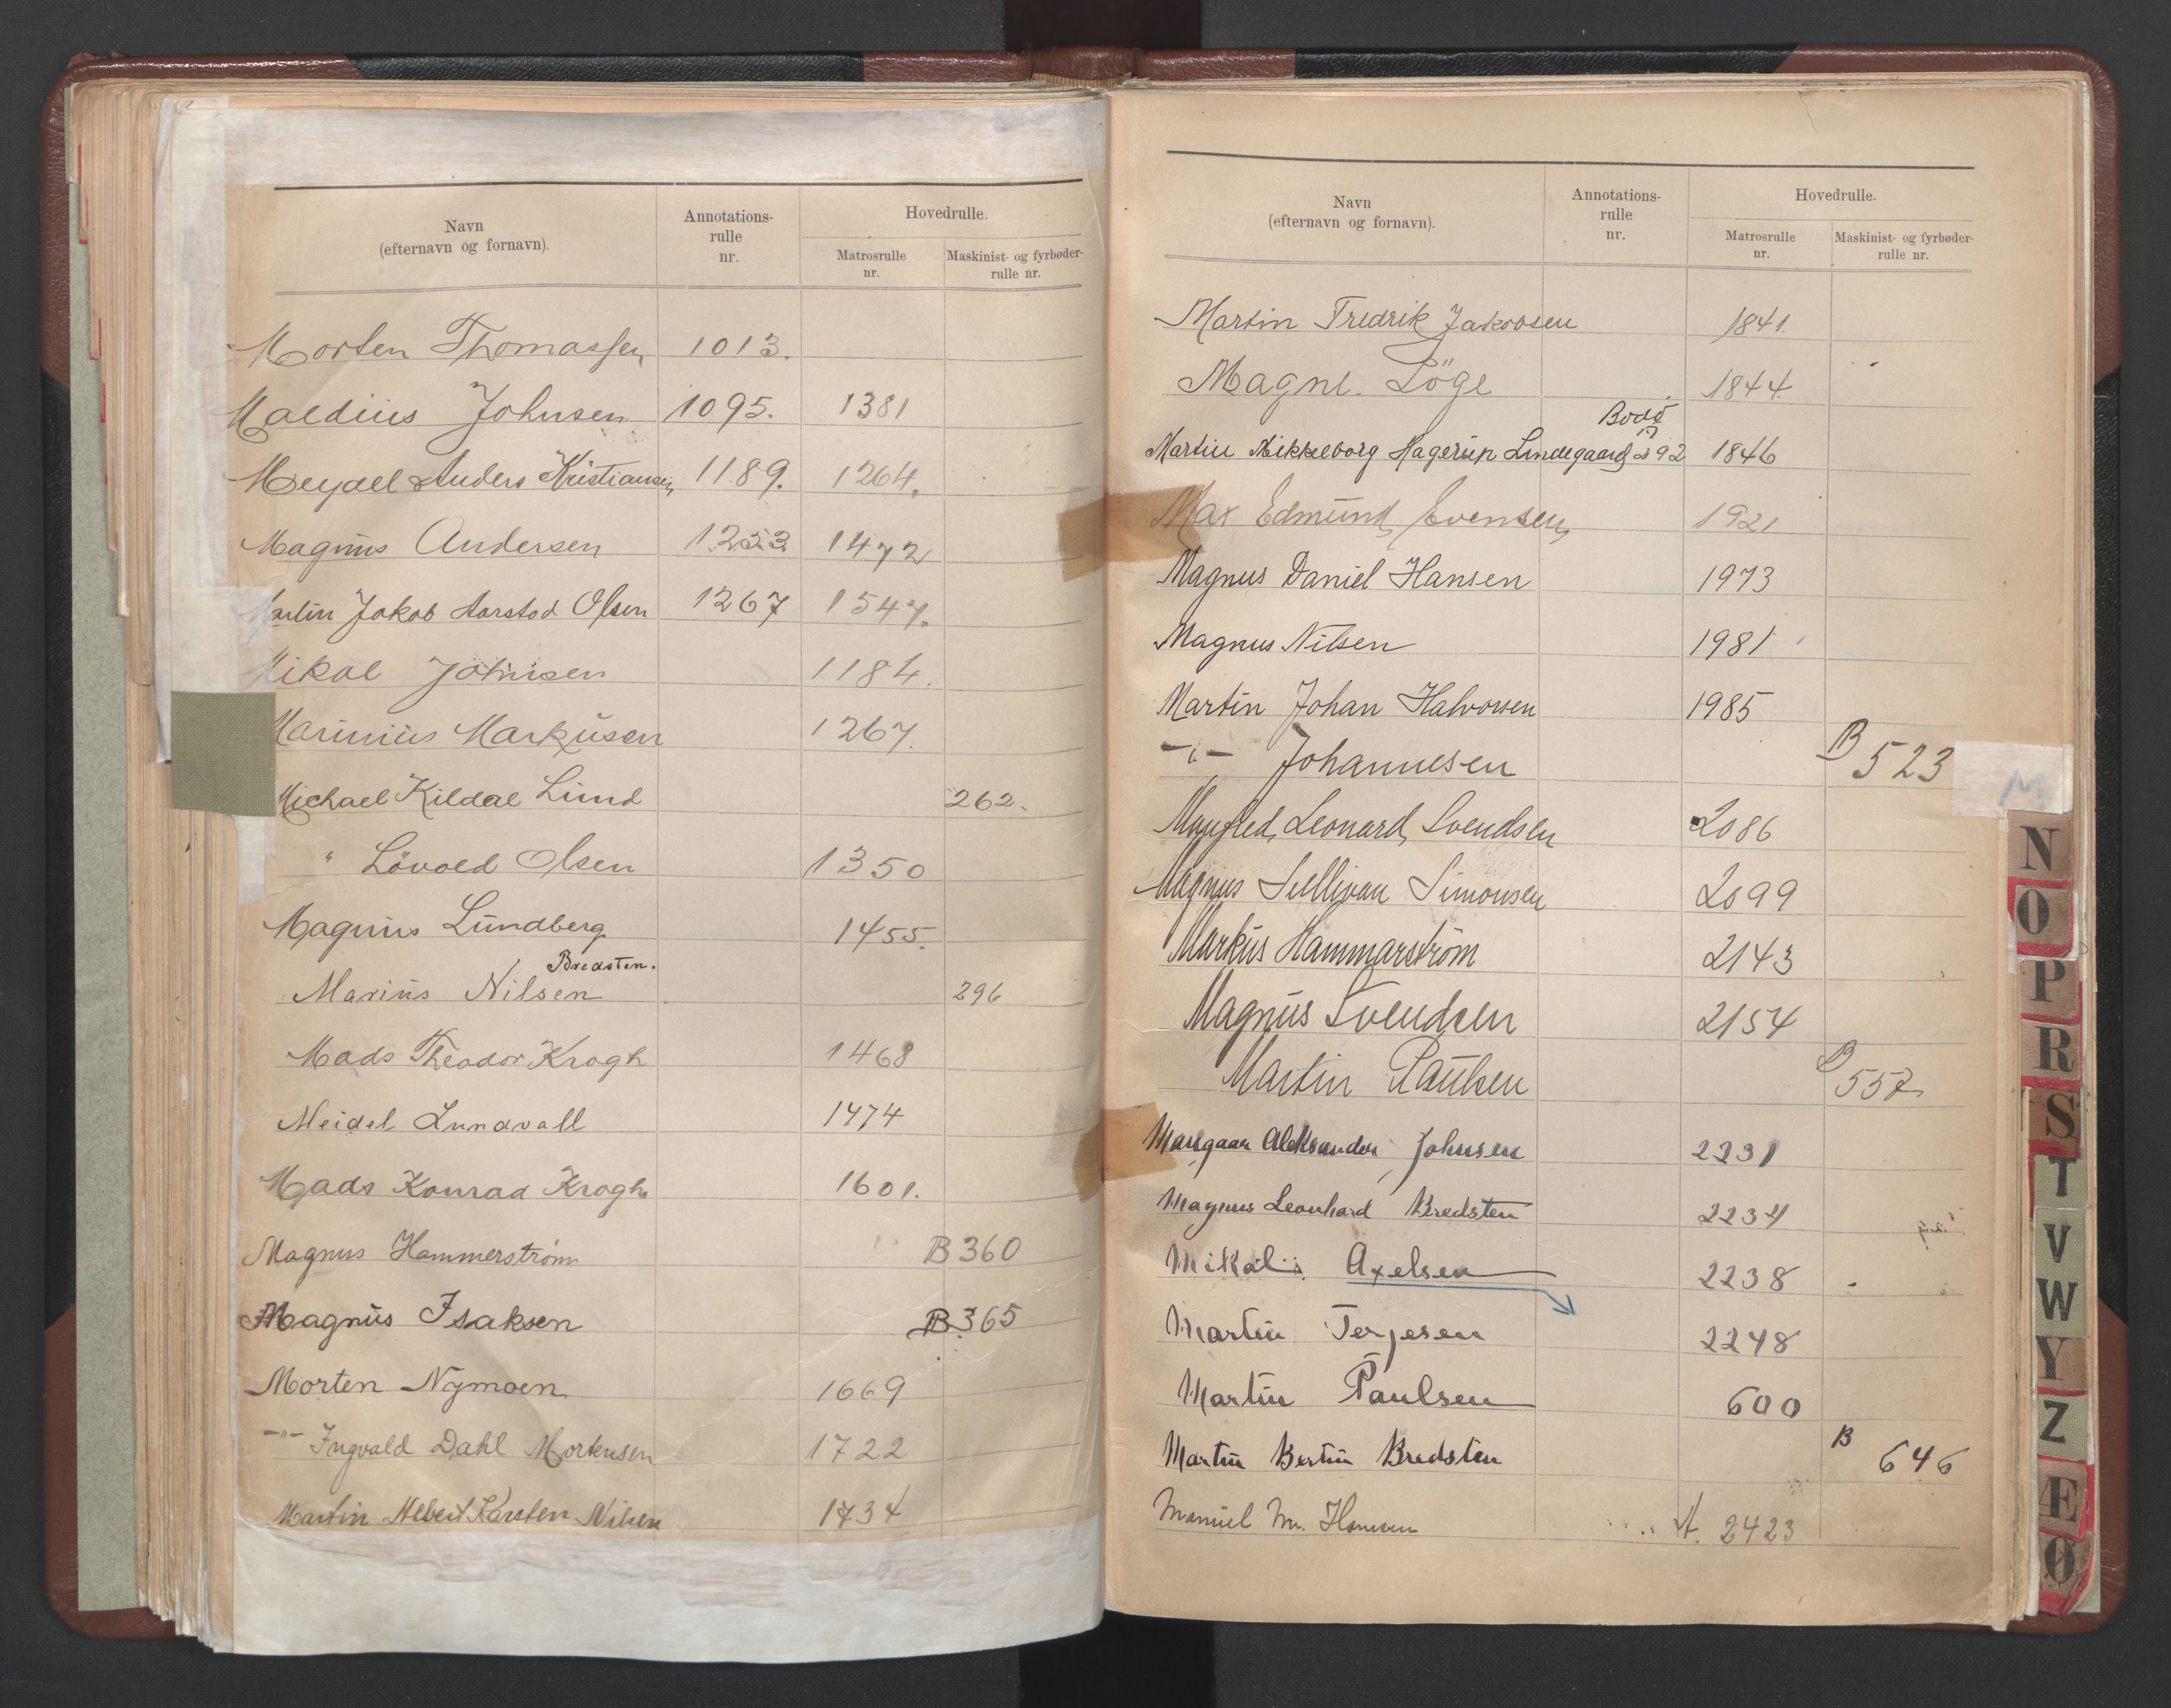 Navn
(efternavn og fornavn).
Annotations-
rulle
nr.
Hovedrulle.
Matrosrulle
nr.
Maskinist- og fyrbøder-
rulle nr.
Morten Thomassen 1013.
Maldius Johnsen 1095. 1381
Meydel Anders Kristiansen 1189. 1264.
Magnus Andersen 1253 1472
Martin Jakob Aarstod Olsen 1267 1547.
Mikal Johnsen 1184.
Marinius Markusen 1267.
Michael Kildal Lund 262.
" Lövold Olsen 1350
Magnus Lundberg 1455.
Bredsten.
Marius Nilsen 296
Mads Theodor Krogh 1468
Meidel Lundvall 1474
Mads Konrad Krogh 1601.
Magnus Hammerstrøm B 360
Magnus Isaksen B 365
Morten Nymoen 1669
-"- Ingvald Dahl Mortensen 1722
Martin Albert Karsten Nilsen 1734
Navn
(efternavn og fornavn).
Annotations-
rulle
nr.
Hovedrulle.
Matrosrulle
nr.
Maskinist- og fyrbøder-
rulle nr.
Martin Fredrik Jakobsen 1841.
Magne. Löge 1844.
Bodö
Martin Mikkelborg Hagerup Lindegaard 92 1846
Max Edmund Evensen 1921
Magnus Daniel Hansen 1973
Magnus Nilsen 1981
Martin Johan Halvorsen 1985
-"- Johannesen B 523
Manfred Leonard Svendsen 2086
Magnus Sullivan Simonsen 2099
Markus Hammarstrøm 2143
Magnus Svendsen 2154
Martin Paulsen B 557
Mangaar Aleksander Johnsen 2231
Magnus Leonhard Bredsten 2234
Mikal Axelsen 2238
Martin Terjesen 2248
Martin Paulsen 600
Martin Bertin Bredsten B 646
Manuel M. Hansen A. 2423
M
N
O
P
R
S
T
V
W
Y
Z
Æ
Ø